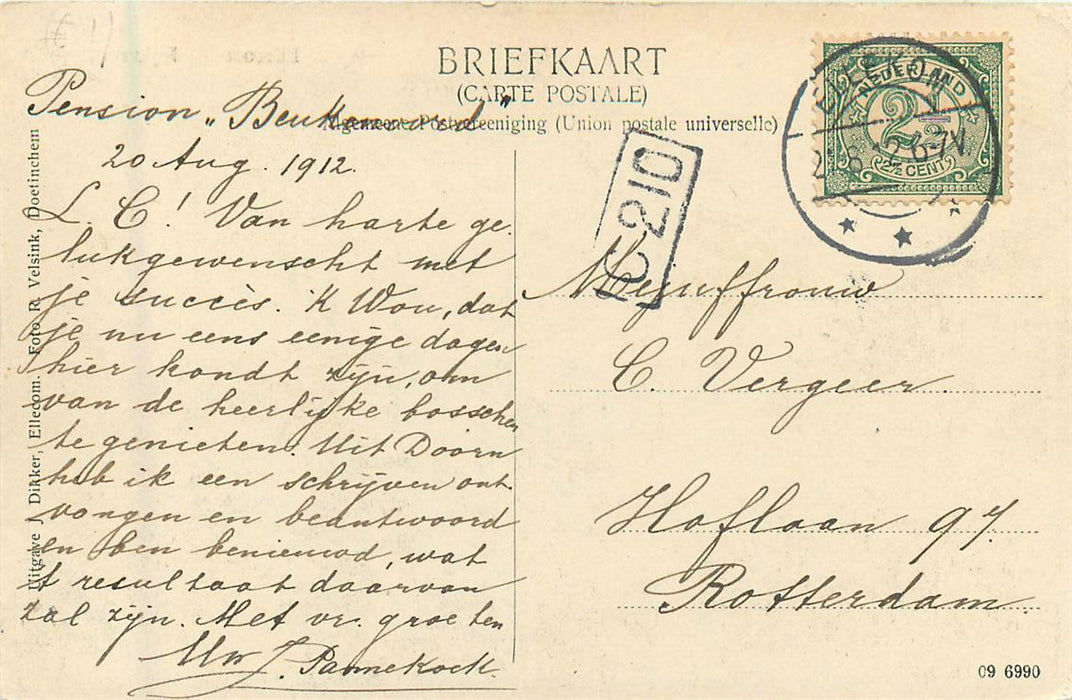 BRIEFKAART
(CARTE POSTALE)
Algemeene Postvereeniging (Union postale universelle)
Pension „Beukenrand"
20 Aug. 1912.
L. C! Van harte ge-
lukgewenscht met
je succès. 'k Wou, dat
je nu eens eenige dagen
hier kondt zijn, om
van de heerlijke bosschen
te genieten. Uit Doorn
heb ik een schrijven ont-
vangen en beantwoord
en ben benieuwd, wat
't resultaat daarvan
zal zijn. Met vr. groeten
Uw J. Pannekoek.
Mejuffrouw
C. Vergeer.
Hoflaan 97.
Rotterdam.
NEDERLAND
2½
2½ CENT
ELLECOM
6-7V
210
Uitgave J. Dikker, Ellecom. Foto R. Velsink, Doetinchem
09 6990